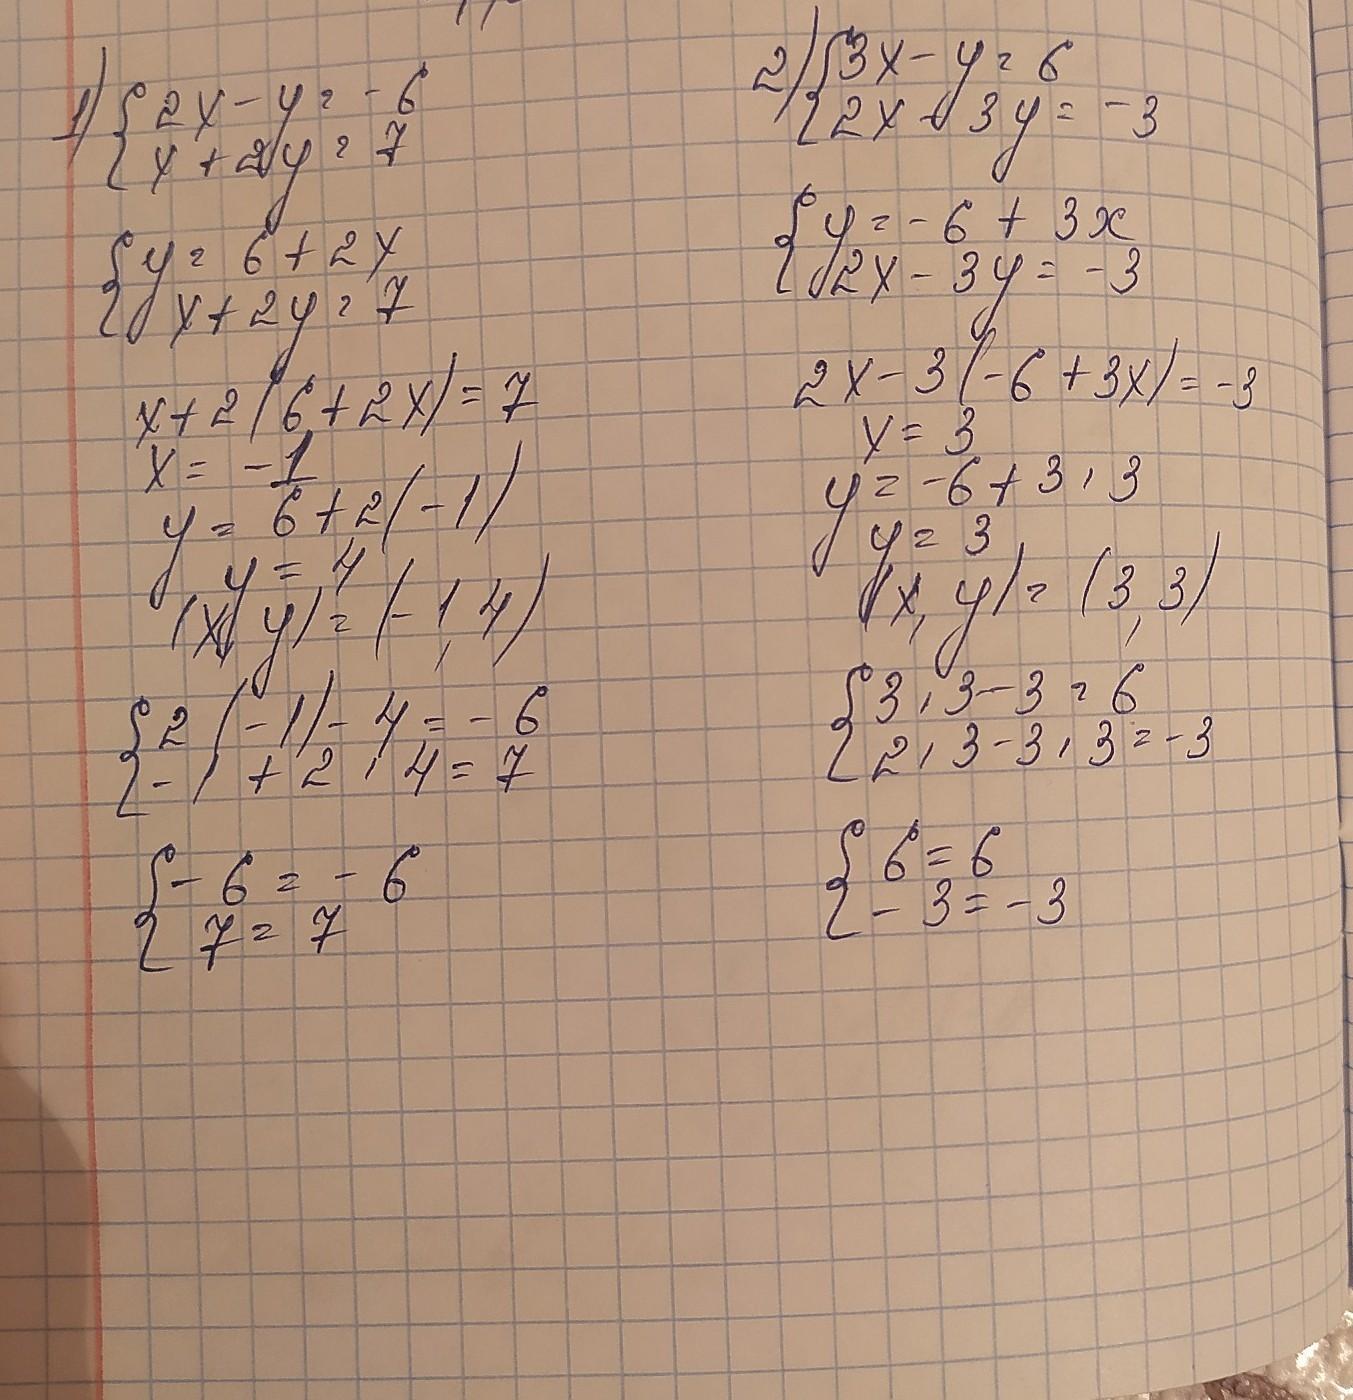 1) { 2x - y = -6
x + 2y = 7
{ y = 6 + 2x
x + 2y = 7
x + 2(6 + 2x) = 7
x = -1
y = 6 + 2(-1)
y = 4
(x, y) = (-1, 4)
{ 2(-1) - 4 = -6
-1 + 2 · 4 = 7
{ -6 = -6
7 = 7
2) { 3x - y = 6
2x - 3y = -3
{ y = -6 + 3x
2x - 3y = -3
2x - 3(-6 + 3x) = -3
x = 3
y = -6 + 3 · 3
y = 3
(x, y) = (3, 3)
{ 3 · 3 - 3 = 6
2 · 3 - 3 · 3 = -3
{ 6 = 6
-3 = -3